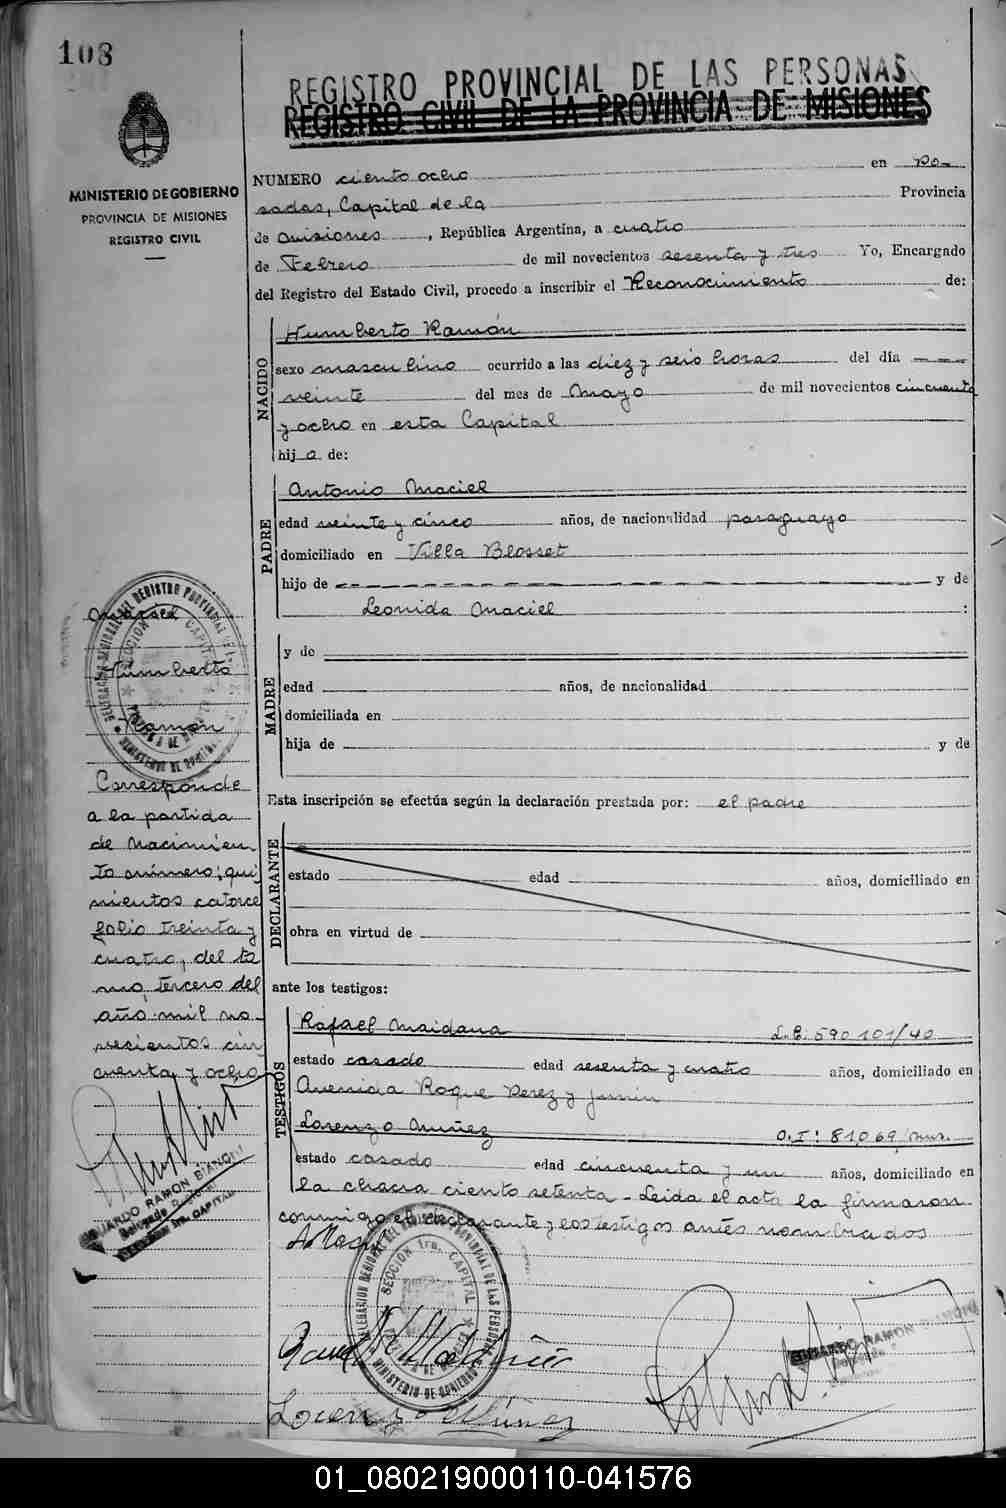 108
REGISTRO PROVINCIAL DE LAS PERSONAS
REGISTRO CIVIL DE LA PROVINCIA DE MISIONES
MINISTERIO DE GOBIERNO
PROVINCIA DE MISIONES
REGISTRO CIVIL
NUMERO ciento ocho en Po-
sadas, Capital de la Provincia
de Misiones, República Argentina, a cuatro
de Febrero de mil novecientos sesenta y tres Yo, Encargado
del Registro del Estado Civil, procedo a inscribir el Reconocimiento de:
NACIDO
Humberto Ramón
sexo masculino ocurrido a las diez y seis horas del día ---
veinte del mes de Mayo de mil novecientos cincuenta
y ocho en esta Capital
hijo de:
PADRE
Antonio Maciel
edad veinte y cinco años, de nacionalidad paraguayo
domiciliado en Villa Blosset
hijo de y de
Leonida Maciel :
MADRE
y de
edad años, de nacionalidad
domiciliada en
hija de y de
Esta inscripción se efectúa según la declaración prestada por: el padre
DECLARANTE
estado edad años, domiciliado en
obra en virtud de
ante los testigos:
TESTIGOS
Rafael Maidana L.E. 590101/40
estado casado edad sesenta y cuatro años, domiciliado en
Avenida Roque Perez y Junin
Lorenzo Nuñez O.I: 81069
estado casado edad cincuenta y un años, domiciliado en
la chacra ciento setenta - Leida el acta la firmaron
conmigo el declarante y los testigos antes nombrados
Maciel
Humberto
Ramon
Corresponde
a la partida
de Nacimien
to número; qui
nientos catorce
folio treinta y
cuatro, del to
mo, tercero del
año mil no-
vecientos cin
cuenta y ocho
EDUARDO RAMON BIANCHI
Delegado
Sección 1ra. CAPITAL
DELEGACION REGIONAL DEL REGISTRO PROVINCIAL DE LAS PERSONAS
SECCION 1ra. CAPITAL
MINISTERIO DE GOBIERNO
Lorenzo Núñez
EDUARDO RAMON BIANCHI
01_080219000110-041576